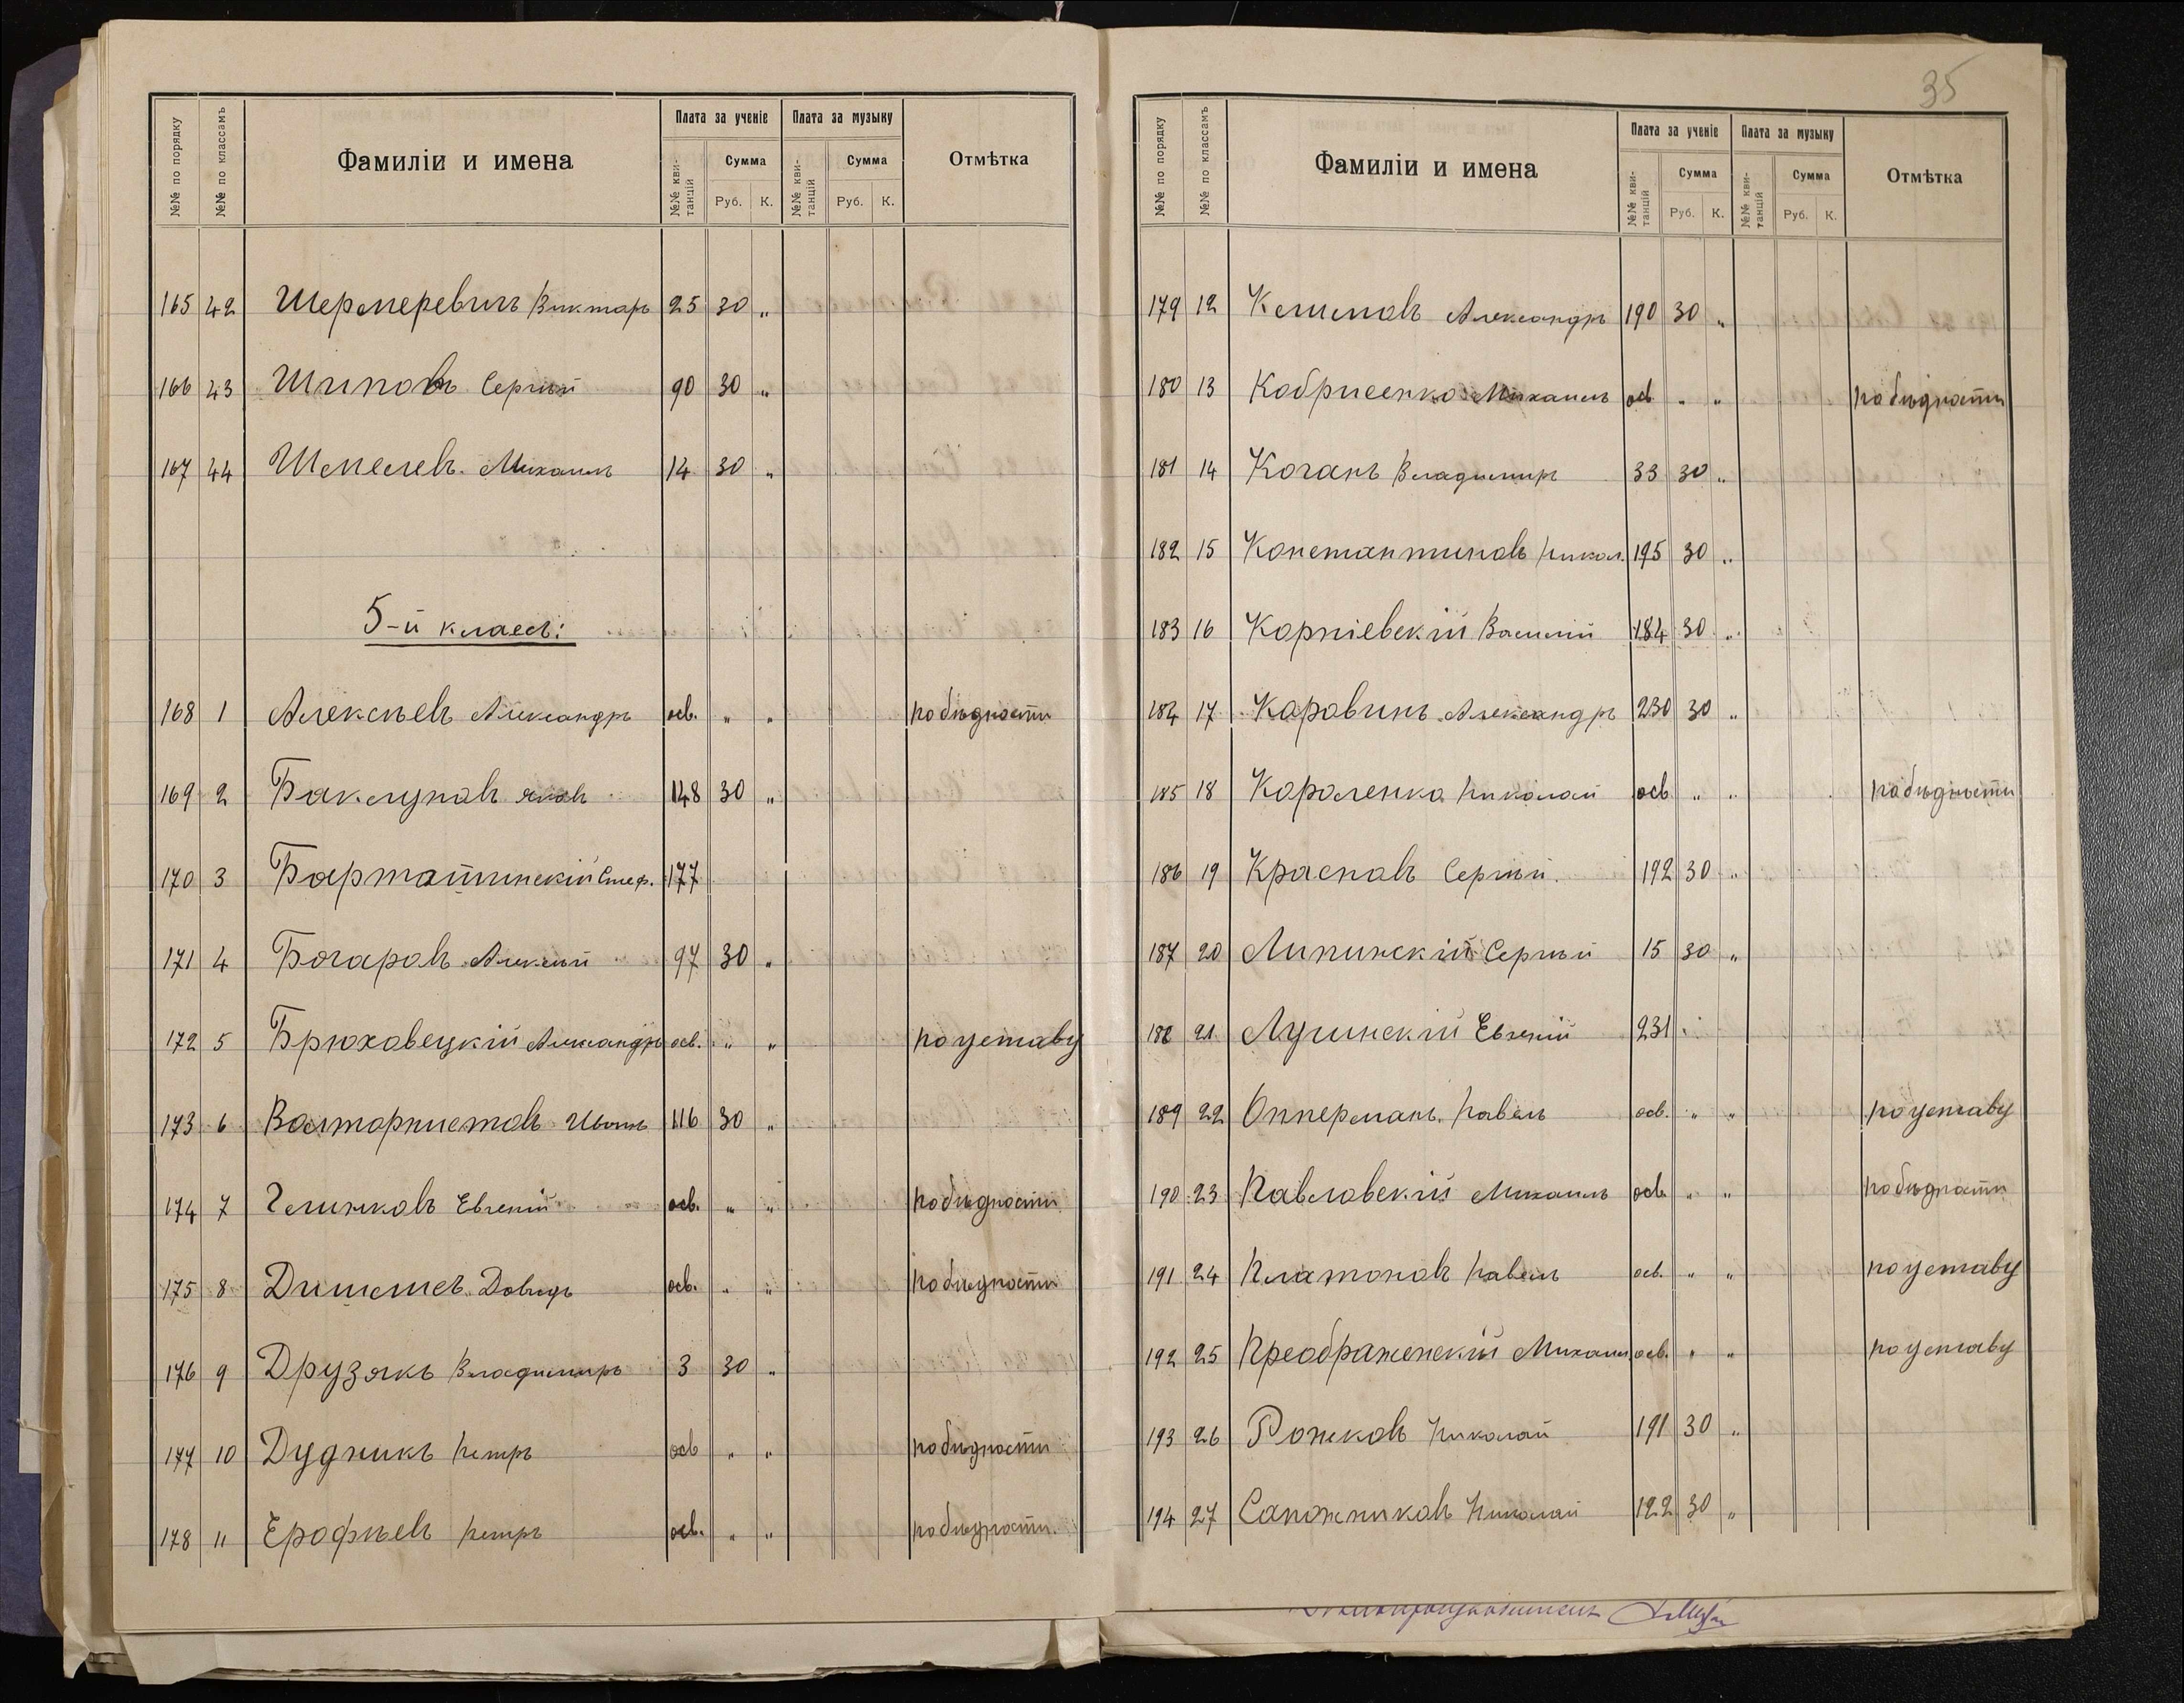 №№ по порядку
№№ по классамъ
Фамиліи и имена
Плата за ученіе
Плата за музыку
№№ кви-
танцій
Сумма
Руб. К.
№№ кви-
танцій
Сумма
Руб. К.
Отмѣтка
165 42 Шермеревичъ Викторъ 25 30 „
166 43 Шиповъ Сергѣй 90 30 „
167 44 Шмелевъ Михаилъ 14 30 „
5-й классъ:
168 1 Алексѣевъ Александръ осв. „ „ по бѣдности
169 2 Баклуновъ Яковъ 148 30 „
170 3 Барташинскій Стеф. 177
171 4 Богаровъ Алексѣй 97 30 „
172 5 Брюховецкій Александръ осв. „ „ по уставу
173 6 Валторнистовъ Иванъ 116 30 „
174 7 Глинковъ Евгеній осв. „ „ по бѣдности
175 8 Давидъ осв. „ „ по бѣдности
176 9 Друзякъ Владимиръ 3 30 „
177 10 Дудникъ Петръ осв „ „ по бѣдности
178 11 Ерофѣевъ Петръ осв. „ „ по бѣдности.
35
№№ по порядку
№№ по классамъ
Фамиліи и имена
Плата за ученіе
Плата за музыку
№№ кви-
танцій
Сумма
Руб. К.
№№ кви-
танцій
Сумма
Руб. К.
Отмѣтка
179 12 Климовъ Александръ 190 30 „
180 13 Михаилъ осв „ „ по бѣдности
181 14 Коганъ Владимиръ 33 30 „
182 15 Константиновъ Никол. 195 30 „
183 16 Корніевскій Василій 184 30 „
184 17 Коровинъ Александръ 230 30 „
185 18 Короленко Николай осв. „ „ по бѣдности
186 19 Красновъ Сергѣй. 192 30 „
187 20 Липинскій Сергѣй 15 30 „
188 21 Лучинскій Евгеній 231
189 22 Опперманъ Павелъ осв. „ „ по уставу
190 23 Павловскій Михаилъ осв. „ „ по бѣдности
191 24 Платоновъ Павелъ осв. „ „ по уставу
192 25 Преображенскій Михаил. осв. „ „ по уставу
193 26 Рожковъ Николай 191 30 „
194 27 Сапожниковъ Николай 122 30 „